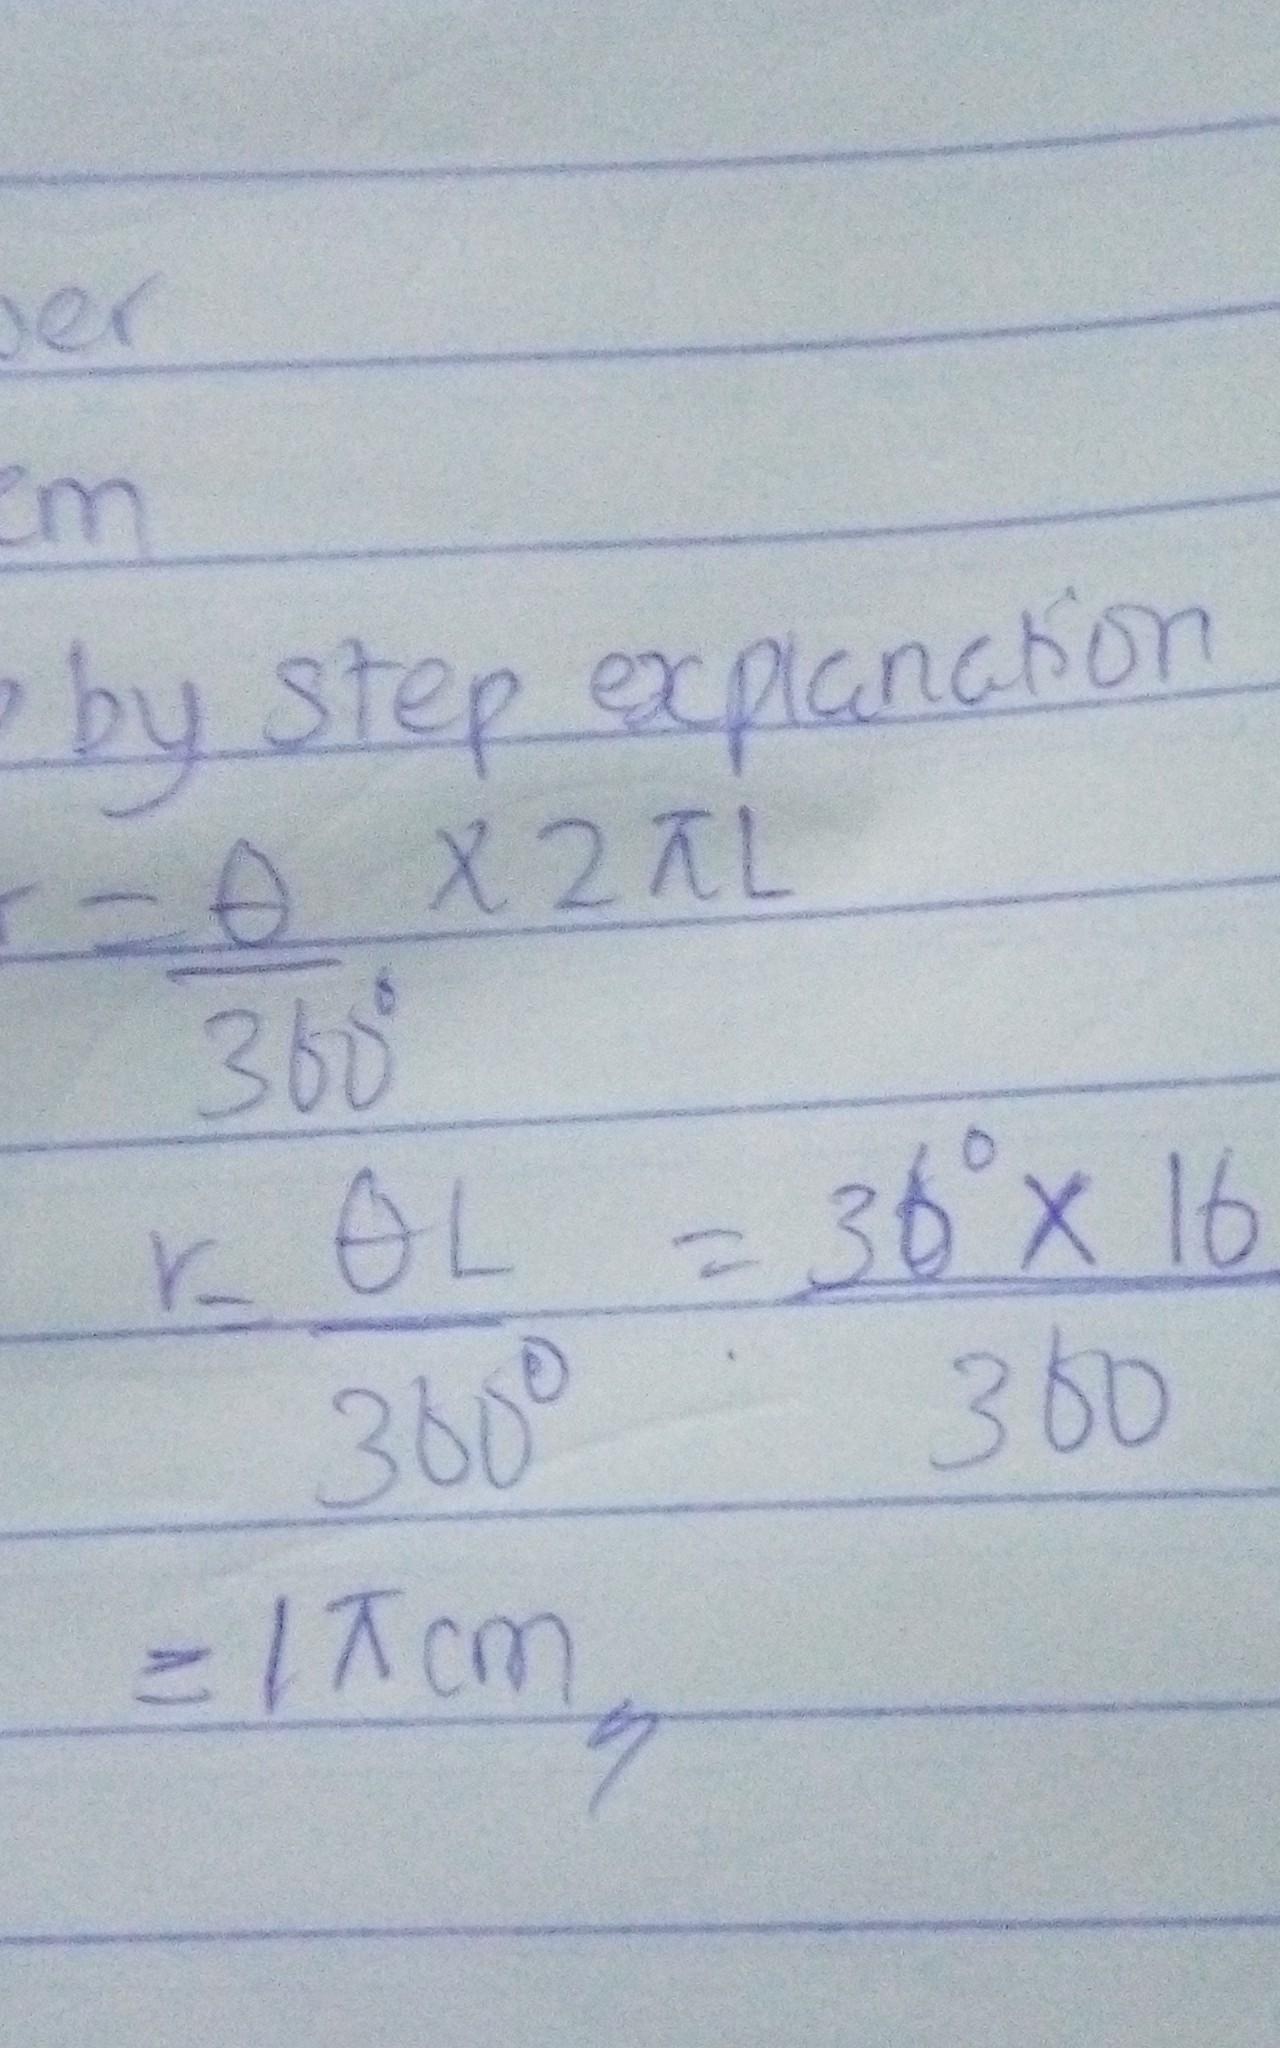 er
cm
by step explanation
r = θ/360° × 2πL
r = θL/360° = 36° × 16/360
= 1πcm